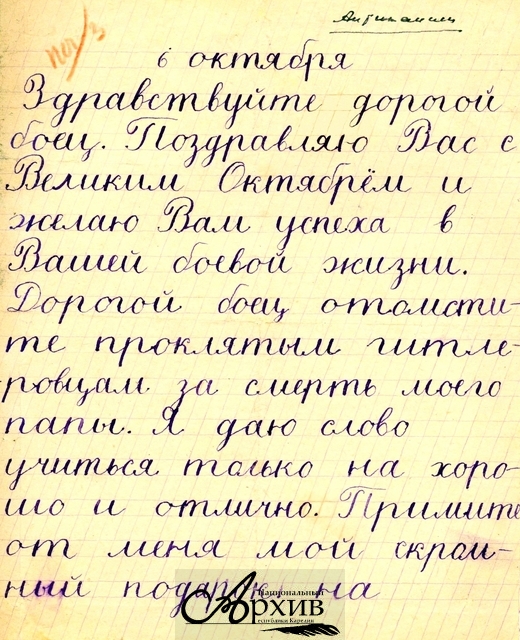 6 октября
Здравствуйте дорогой
боец. Поздравляю Вас с
Великим Октябрём и
желаю Вам успеха в
Вашей боевой жизни.
Дорогой боец отомсти-
те проклятым гитле-
ровцам за смерть моего
папы. Я даю слово
учиться только на хоро-
шо и отлично. Примите
от меня мой скром-
ный подарок на
Национальный
Архив
Республики Карелия